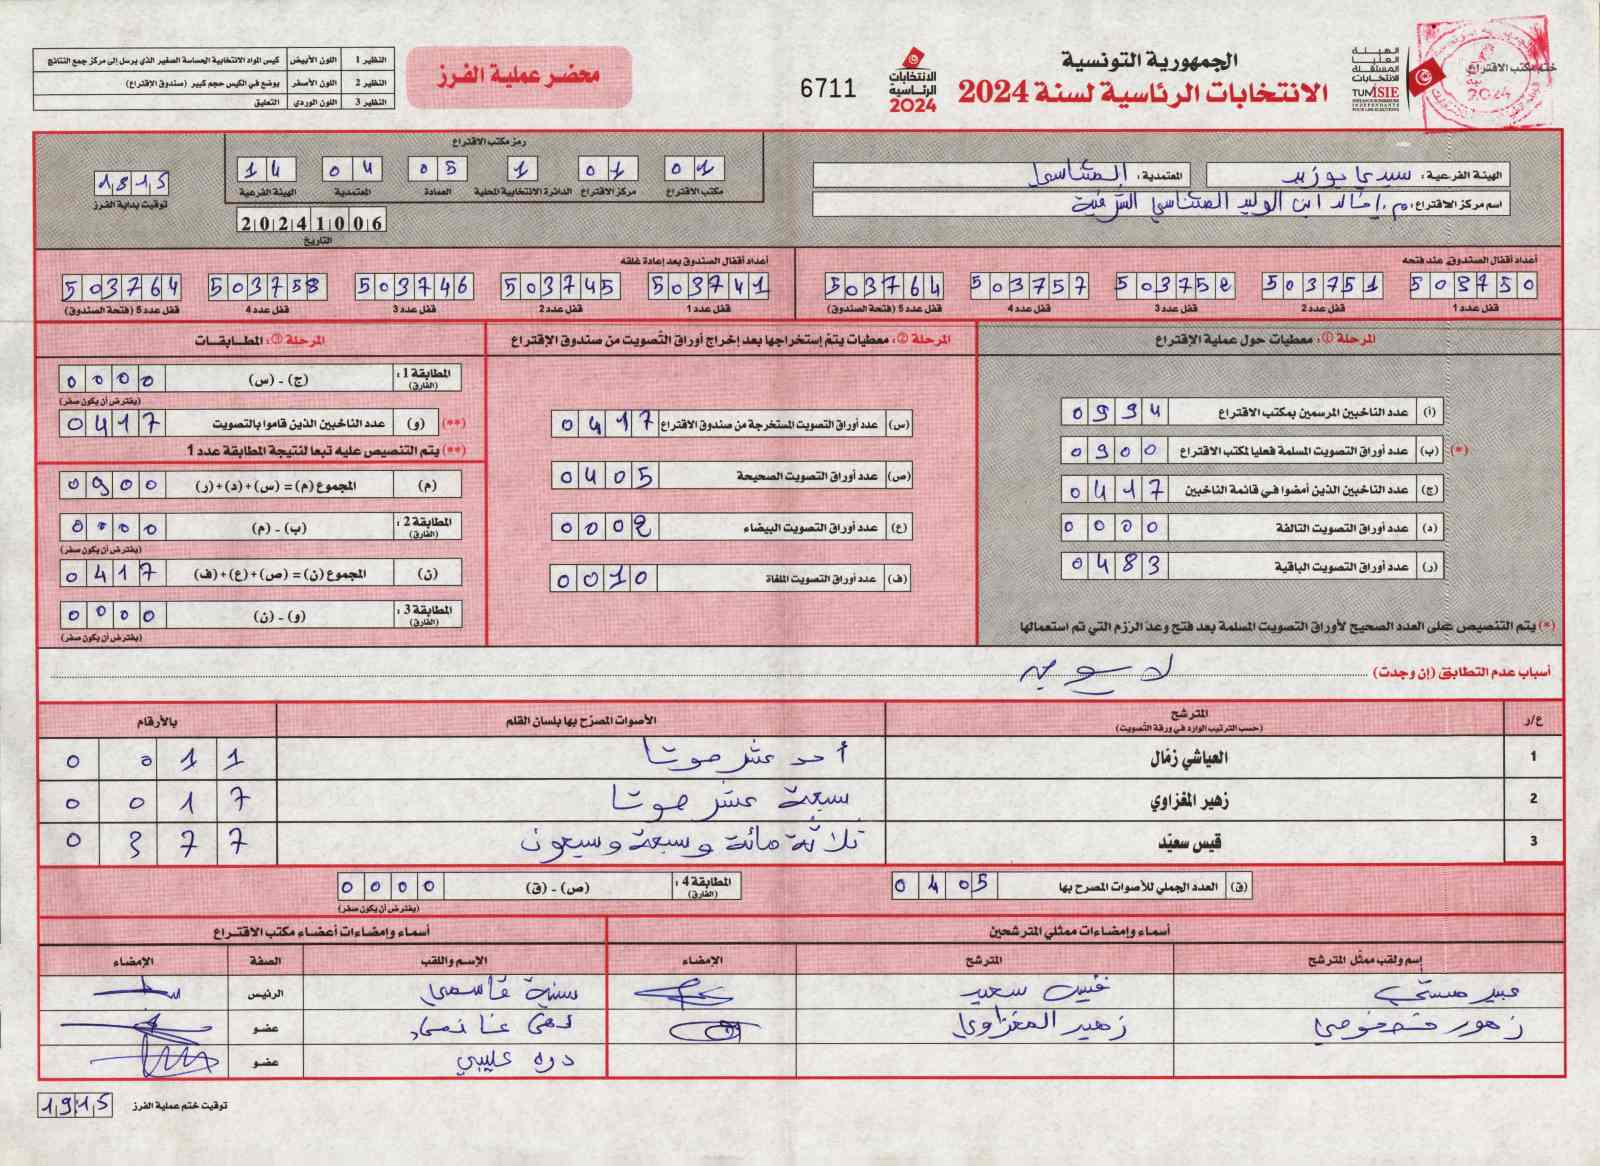 ختم مكتب الاقتراع
2024
الهيئة العليا المستقلة للانتخابات
TUNISIE
INSTANCE SUPERIEURE INDEPENDANTE POUR LES ELECTIONS
الجمهورية التونسية
الانتخابات الرئاسية لسنة 2024
الانتخابات الرئاسية 2024
6711
محضر عملية الفرز
النظير 1 اللون الأبيض كيس المواد الانتخابية الحساسة الصغير الذي يرسل إلى مركز جمع النتائج
النظير 2 اللون الأصفر يوضع في الكيس حجم كبير (صندوق الاقتراع)
النظير 3 اللون الوردي التعليق
الهيئة الفرعية: سيدي بوزيد المعتمدية:
اسم مركز الاقتراع: م. إ خالد ابن الوليد الشرقية
رمز مكتب الاقتراع
01 01 1 05 04 14
مكتب الاقتراع مركز الاقتراع الدائرة الانتخابية المحلية العمادة المعتمدية الهيئة الفرعية
1815
توقيت بداية الفرز
20241006
التاريخ
أعداد أقفال الصندوق عند فتحه
503750 503751 503752 503757 503764
قفل عدد 1 قفل عدد 2 قفل عدد 3 قفل عدد 4 قفل عدد 5 (فتحة الصندوق)
أعداد أقفال الصندوق بعد إعادة غلقه
503741 503745 503746 503758 503764
قفل عدد 1 قفل عدد 2 قفل عدد 3 قفل عدد 4 قفل عدد 5 (فتحة الصندوق)
المرحلة ①: معطيات حول عملية الإقتراع
(أ) عدد الناخبين المرسمين بمكتب الاقتراع 0994
(*) (ب) عدد أوراق التصويت المسلمة فعليا لمكتب الاقتراع 0900
(ج) عدد الناخبين الذين أمضوا في قائمة الناخبين 0417
(د) عدد أوراق التصويت التالفة 0000
(ر) عدد أوراق التصويت الباقية 0483
(*) يتم التنصيص على العدد الصحيح لأوراق التصويت المسلمة بعد فتح وعدّ الرّزم التي تم استعمالها
المرحلة ②: معطيات يتم إستخراجها بعد إخراج أوراق التصويت من صندوق الإقتراع
(س) عدد أوراق التصويت المستخرجة من صندوق الاقتراع 0417
(ص) عدد أوراق التصويت الصحيحة 0405
(ع) عدد أوراق التصويت البيضاء 0002
(ف) عدد أوراق التصويت الملغاة 0010
المرحلة ③: المطابقات
المطابقة 1: (الفارق) (ج) - (س) 0000
(يفترض أن يكون صفر)
(**) (و) عدد الناخبين الذين قاموا بالتصويت 0417
(**) يتم التنصيص عليه تبعا لنتيجة المطابقة عدد 1
(م) المجموع (م) = (س)+(د)+(ر) 0900
المطابقة 2: (الفارق) (ب) - (م) 0000
(يفترض أن يكون صفر)
(ن) المجموع (ن) = (ص)+(ع)+(ف) 0417
المطابقة 3: (الفارق) (و) - (ن) 0000
(يفترض أن يكون صفر)
أسباب عدم التطابق (إن وجدت)
ع/ر المترشح (حسب الترتيب الوارد في ورقة التصويت) الأصوات المصرّح بها بلسان القلم بالأرقام
1 العياشي زمّال أحد عشر صوتا 0011
2 زهير المغزاوي سبعة عشر صوتا 0017
3 قيس سعيّد ثلاثة مائة وسبعة وسبعون 0377
(ق) العدد الجملي للأصوات المصرح بها 0405
المطابقة 4: (الفارق) (ص) - (ق) 0000
(يفترض أن يكون صفر)
أسماء وإمضاءات ممثلي المترشحين
إسم ولقب ممثّل المترشح المترشح الإمضاء
عبير قيس سعيد
زهور زهير المغزاوي
أسماء وإمضاءات أعضاء مكتب الاقتراع
الإسم واللقب الصفة الإمضاء
سنية قاسمي الرئيس
غانمي عضو
درة عليبي عضو
توقيت ختم عملية الفرز 1915